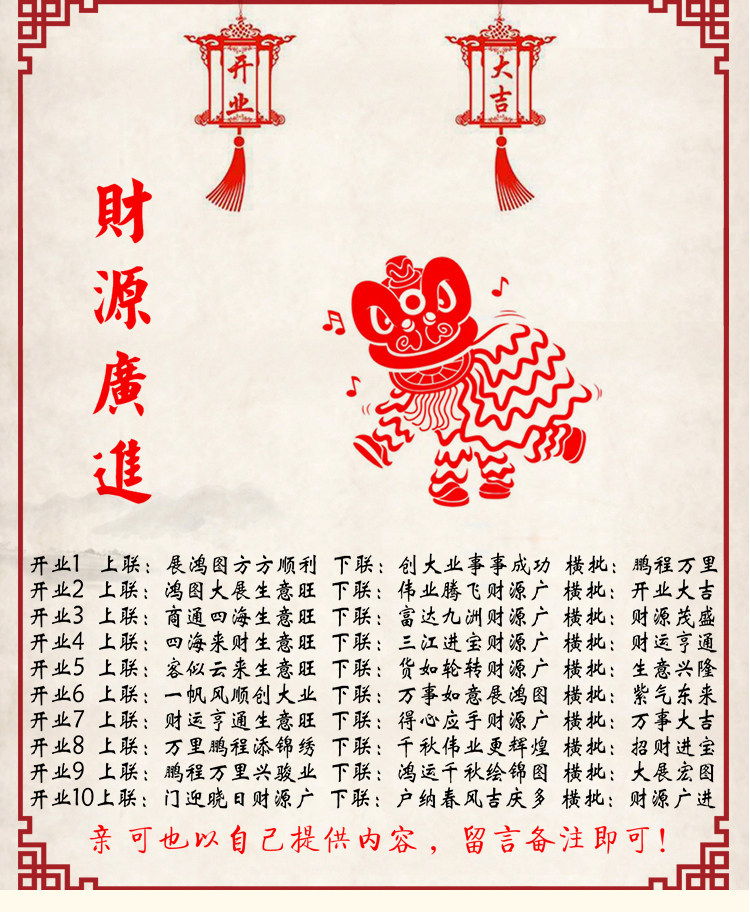 开业
大吉
財源廣進
开业1 上联：展鸿图方方顺利 下联：创大业事事成功 横批：鹏程万里
开业2 上联：鸿图大展生意旺 下联：伟业腾飞财源广 横批：开业大吉
开业3 上联：商通四海生意旺 下联：富达九洲财源广 横批：财源茂盛
开业4 上联：四海来财生意旺 下联：三江进宝财源广 横批：财运亨通
开业5 上联：客似云来生意旺 下联：货如轮转财源广 横批：生意兴隆
开业6 上联：一帆风顺创大业 下联：万事如意展鸿图 横批：紫气东来
开业7 上联：财运亨通生意旺 下联：得心应手财源广 横批：万事大吉
开业8 上联：万里鹏程添锦绣 下联：千秋伟业更辉煌 横批：招财进宝
开业9 上联：鹏程万里兴骏业 下联：鸿运千秋绘锦图 横批：大展宏图
开业10上联：门迎晓日财源广 下联：户纳春风吉庆多 横批：财源广进
亲可也以自己提供内容，留言备注即可！